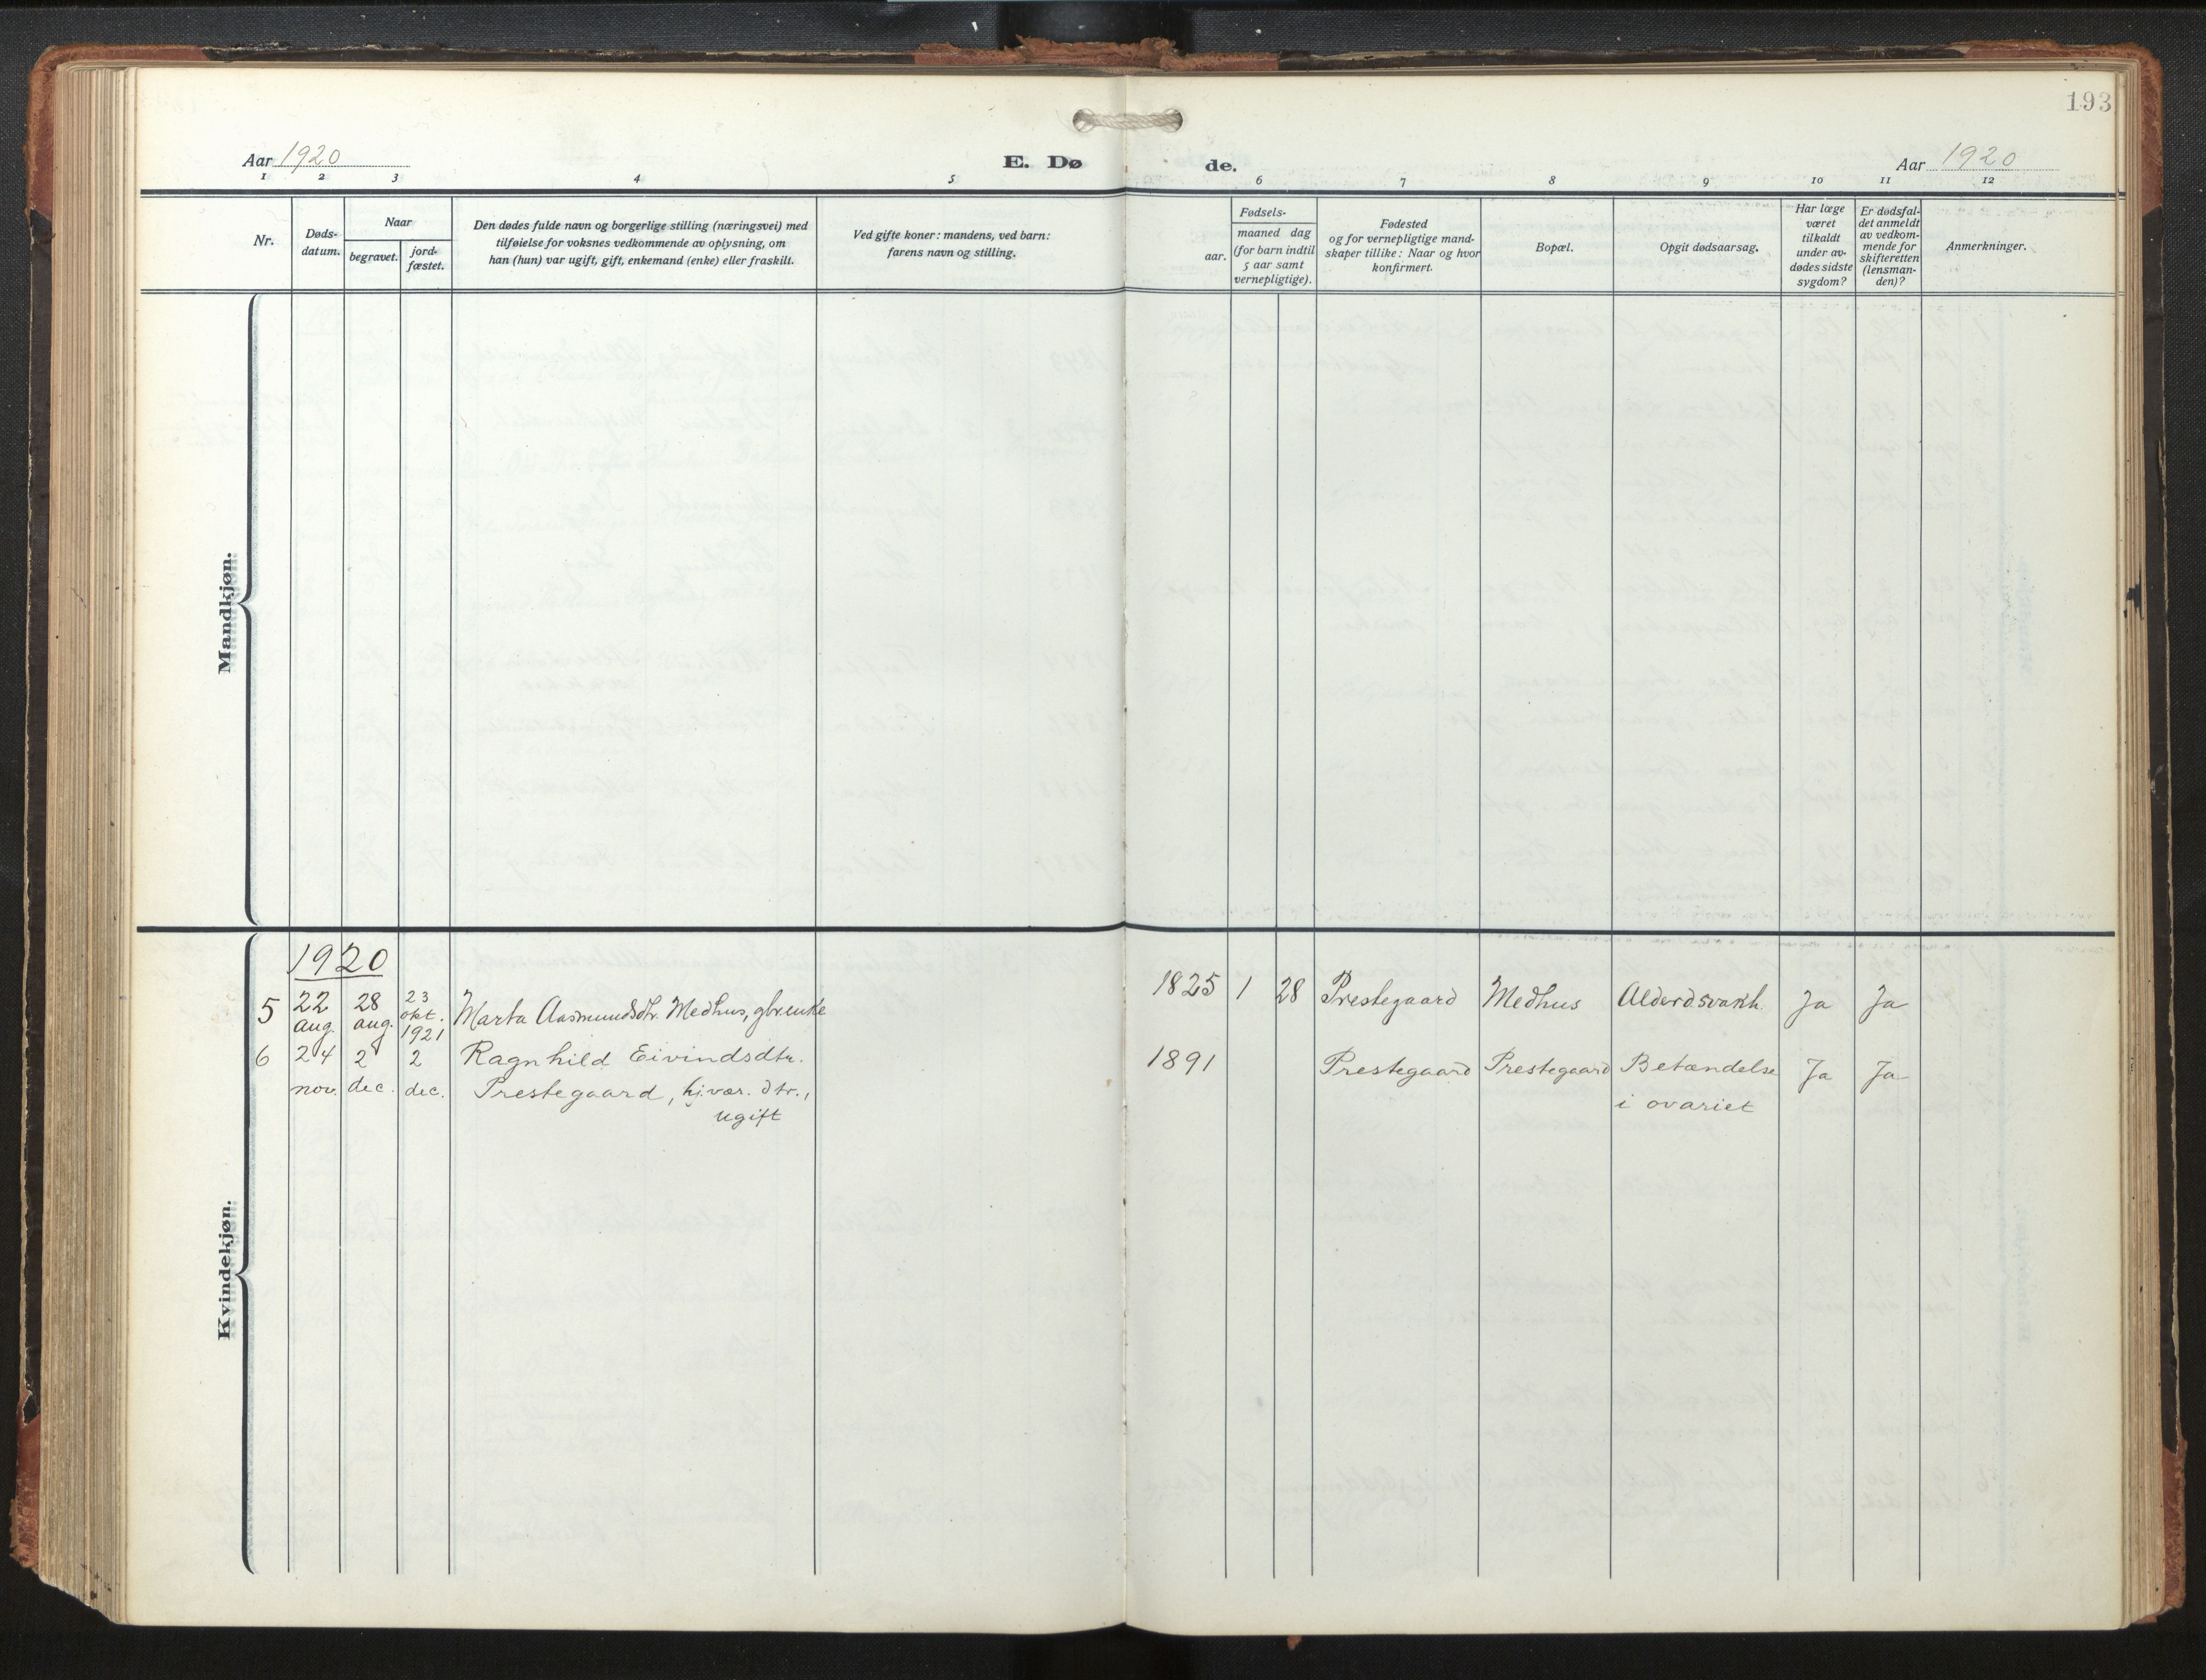 193
Aar 1920
E. Dø
de.
Aar 1920
1 2 3 4 5 6 7 8 9 10 11 12
Nr.
Døds-
datum.
Naar
begravet.
jord-
fæstet.
Den dødes fulde navn og borgerlige stilling (næringsvei) med
tilføielse for voksnes vedkommende av oplysning, om
han (hun) var ugift, gift, enkemand (enke) eller fraskilt.
Ved gifte koner: mandens, ved barn:
farens navn og stilling.
aar.
Fødsels-
maaned dag
(for barn indtil
5 aar samt
vernepligtige).
Fødested
og for vernepligtige mand-
skaper tillike: Naar og hvor
konfirmert.
Bopæl.
Opgit dødsaarsag.
Har læge
været
tilkaldt
under av-
dødes sidste
sygdom?
Er dødsfal-
det anmeldt
av vedkom-
mende for
skifteretten
(lensman-
den)?
Anmerkninger.
Mandkjøn.
Kvindekjøn.
1920
5 22 aug. 28 aug. 23 okt. 1921 Marta Aasmundsdtr. Medhus, gbr.enke 1825 1 28 Prestegaard Medhus Alderdsvakh. Ja Ja
6 24 2 2 Ragnhild Eivindsdtr. 1891 Prestegaard Prestegaard Betændelse Ja Ja
nov. dec. dec. Prestegaard, hj.vær. dtr., i ovariet
ugift